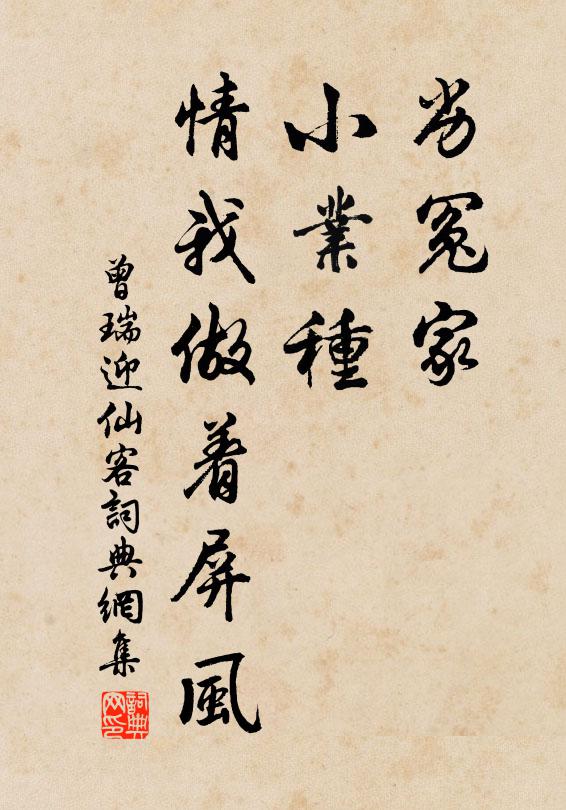 劣冤家
小業種
情我做着屏風
曾瑞迎仙客詞典網集
詞典网印